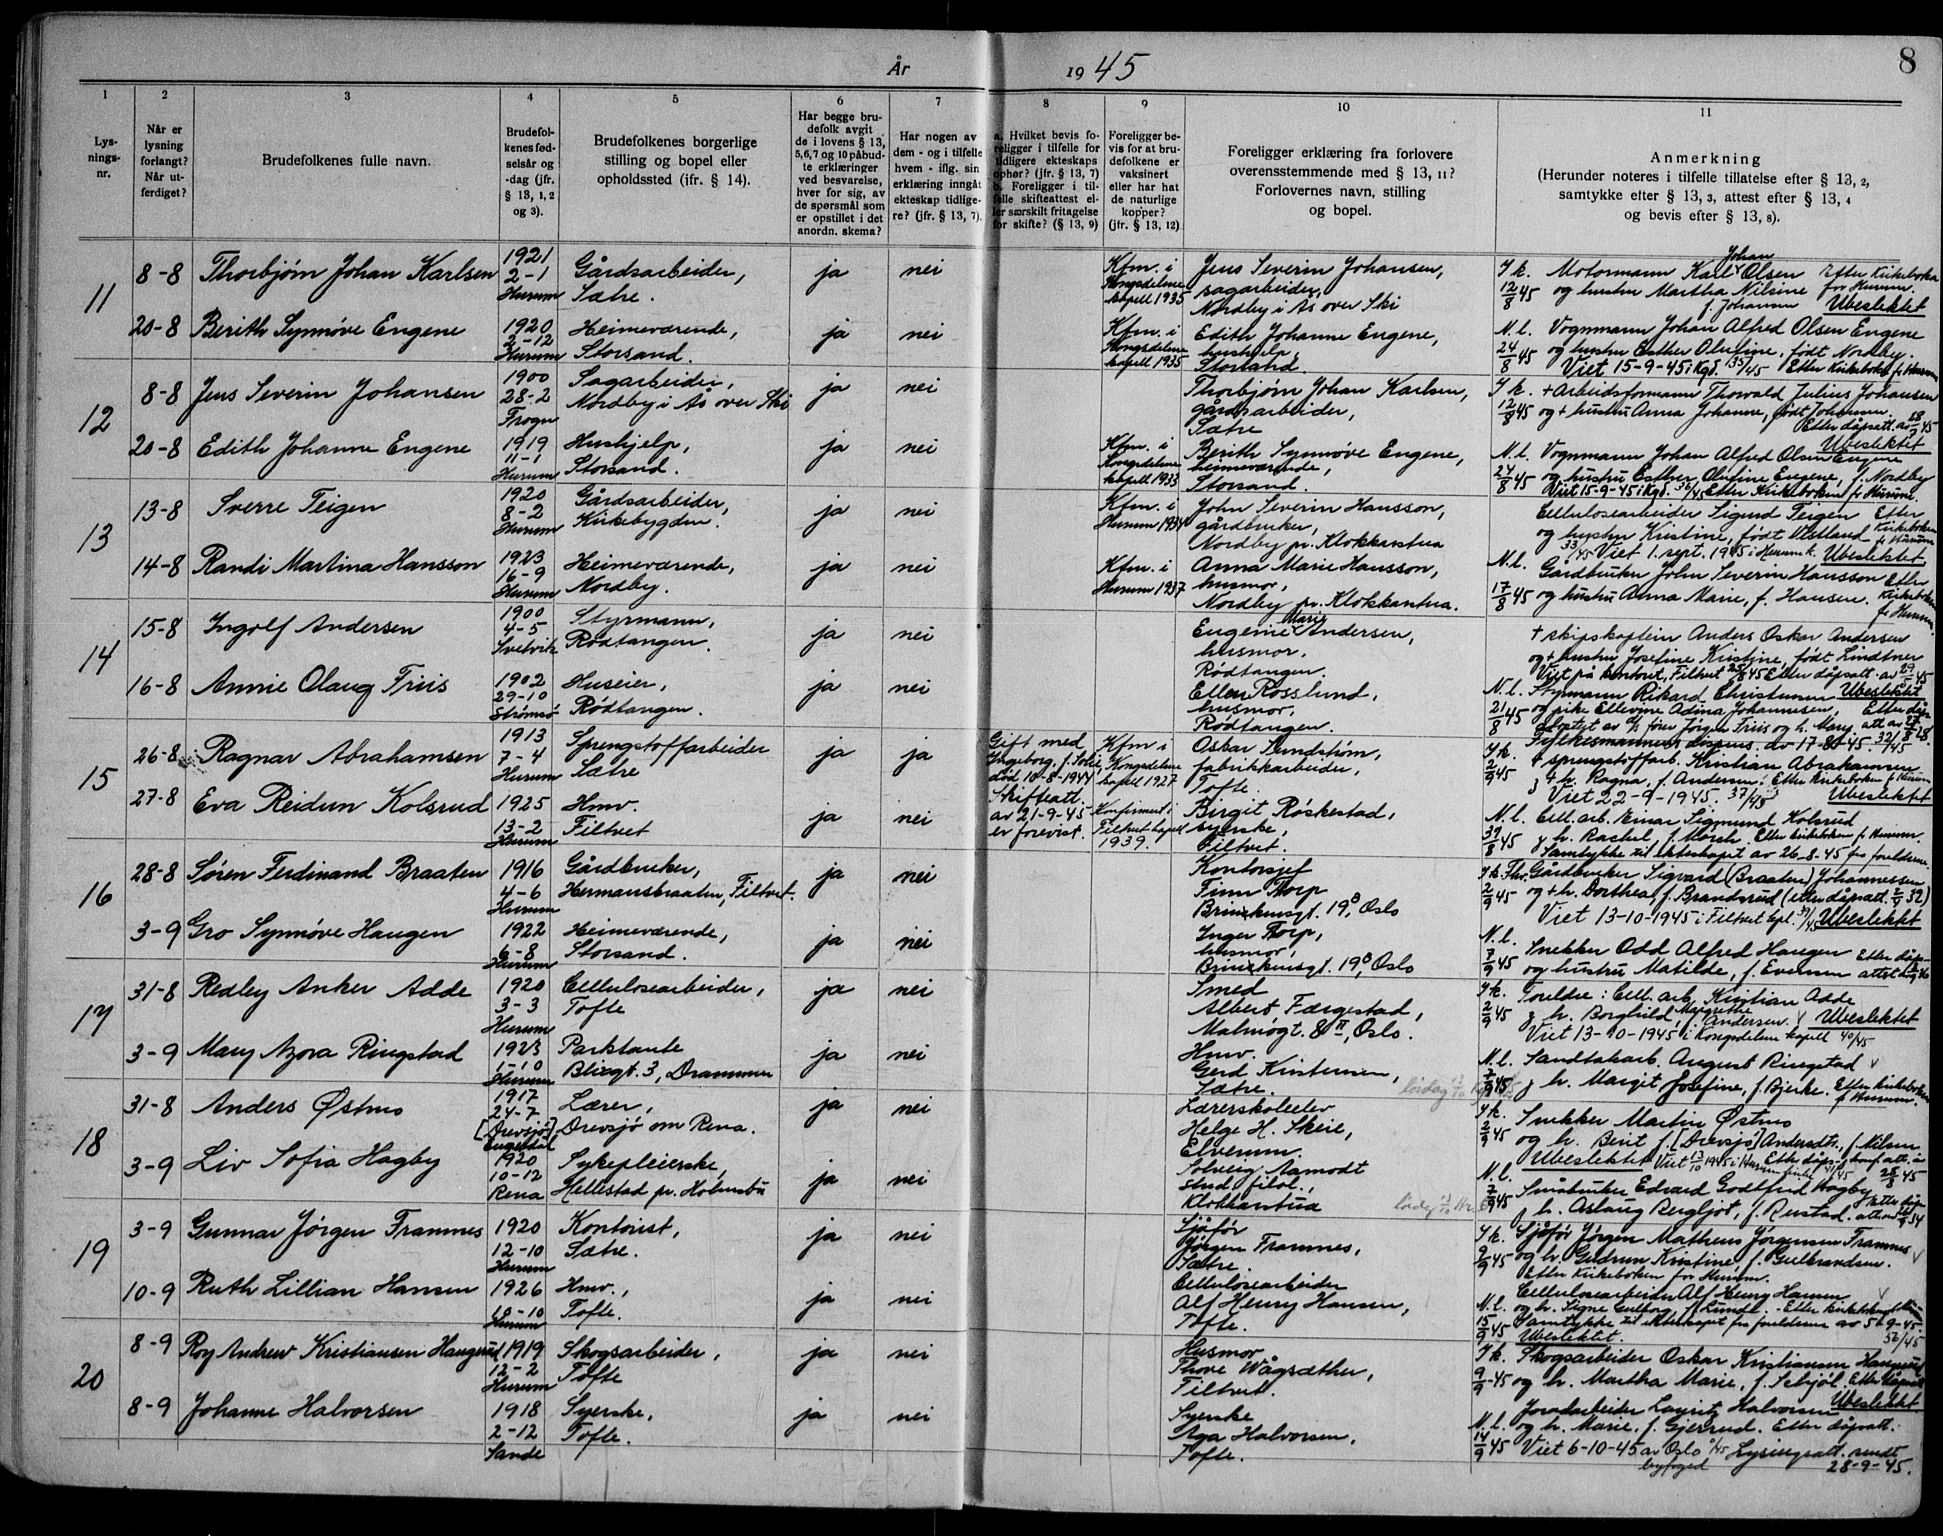 År 1945
8
1 2 3 4 5 6 7 8 9 10 11
Lys-
nings-
nr.
Når er
lysning
forlangt?
Når ut-
ferdiget?
Brudefolkenes fulle navn.
Brudefol-
kenes fød-
selsår og
-dag (jfr.
§ 13, 1, 2
og 3).
Brudefolkenes borgerlige
stilling og bopel eller
opholdssted (jfr. § 14).
Har begge bru-
defolk avgitt
de i lovens § 13,
5,6,7 og 10 påbud-
te erklæringer
ved besvarelse,
hver for sig, av
de spørsmål som
er opstillet i det
anordn. skema?
Har nogen av
dem - og i tilfelle
hvem - iflg. sin
erklæring inngått
ekteskap tidlige-
re? (jfr. § 13, 7).
a. Hvilket bevis fo-
religger i tilfelle for
tidligere ekteskaps
ophør? (jfr. § 13, 7)
b. Foreligger i til-
felle skifteattest el-
ler særskilt fritagelse
for skifte? (§ 13, 9)
Foreligger be-
vis for at bru-
defolkene er
vaksinert
eller har hatt
de naturlige
kopper?
(jfr. § 13, 12)
Foreligger erklæring fra forlovere
overensstemmende med § 13, 11?
Forlovernes navn, stilling
og bopel.
Anmerkning
(Herunder noteres i tilfelle tillatelse efter § 13, 2,
samtykke efter § 13, 3, attest efter § 13, 4
og bevis efter § 13, 8).
11
8-8 Thorbjørn Johan Karlsen
1921
2-1
Hurum
Gårdsarbeider,
Sætre.
ja nei
Kfm. i
Kongsdelene
kapell 1935
Jens Severin Johansen,
sagarbeider,
Nordby i Ås over Ski
Y k.
12/8 45
Motormann Karl Johan Olsen Efter Kirkeboka
og hustru Martha Nilsine for Hurum.
f. Johansen Ubeslektet
20-8 Berith Synnøve Engene
1920
2-12
Hurum
Heimeværende,
Storsand.
ja nei
Kfm. i
Kongsdelene
kapell 1935
Edith Johanne Engene,
hushjelp,
Storsand.
N. l.
24/8 45
Vognmann Johan Alfred Olsen Engene
og hustru Esther Olufine, født Nordby.
Viet 15-9-45 i Kgd. 35/45 Efter Kirkeboken f. Hurum
12
8-8 Jens Severin Johansen
1900
28-2
Frogn
Sagarbeider,
Nordby i Ås over Ski
ja nei
Thorbjørn Johan Karlsen,
gårdsarbeider,
Sætre
Y k.
+ Arbeidsformann Thorvald Julius Johansen
og + hustru Anna Johanne, født Johansen.
Efter dåpsatt. av
Ubeslektet
20-8 Edith Johanne Engene
1919
11-1
Hurum
Hushjelp,
Storsand.
ja nei
Kfm. i
Kongsdelene
kapell 1933
Berith Synnøve Engene,
heimeværende,
Storsand.
N. l.
24/8 45
Vognmann Johan Alfred Olsen Engene
og hustru Esther Olufine Engene, f. Nordby
Viet 15-9-45 i Kgd. 36/45 Efter Kirkeboken f. Hurum.
13
13-8 Sverre Teigen
1920
8-2
Hurum
Gårdsarbeider,
Kirkebygden.
ja nei
Kfm. i
Hurum 1934
John Severin Hansson,
gårdbruker,
Nordby pr. Klokkarstua
Cellulosearbeider Sigurd Teigen Efter
og hustru Kristine, født Kirkeboken
f. Hurum
33/45 Viet 1. sept. 1945 i Hurum k. Ubeslektet
14-8 Randi Martina Hansson
1923
16-9
Hurum
Heimeværende,
Nordby.
ja nei
Kfm. i
Hurum 1937
Anna Marie Hansson,
husmor,
Nordby pr. Klokkarstua.
N. l.
17/8 45
Gårdbruker John Severin Hansson Efter
og hustru Anna Marie, f. Hansen. Kirkeboken
for Hurum.
14
15-8 Ingolf Andersen
1900
4-5
Svelvik
Styrmann,
Rødtangen.
ja nei
Eugenie Marie Andersen,
husmor.
Rødtangen
+ skipskaptein Anders Oskar Andersen
og + hustru Josefine Kristine, født Lindtner
Viet på kontoret, Filtvet 25/8 45 Efter dåpsatt. av
16-8 Annie Olaug Friis
1902
29-10
Strømsø
Huseier,
Rødtangen.
ja nei
Ellen Rosslund,
husmor,
Rødtangen.
N. l.
21/8 45
Styrmann Rikard Christensen Ubeslektet
og pike Ellevine Adina Johannesen, Efter dåps
adoptert av Jørgen Friis og h. Mary
Fylkesmannens dispens. av 17-8-45. 32/45
15
26-8 Ragnar Abrahamsen
1913
7-4
Hurum
Sprengstoffarbeider
Sætre
ja ja
Gift med
Ingeborg, f. Solli,
død 10-8-1944
Skifteatt.
av 21-9-45
er forevist.
Kfm i
Kongsdelene
kapell 1927
Oskar Lundstrøm,
fabrikkarbeider,
Tofte.
Y k.
2/9 45
+ sprengstoffarb. Kristian Abrahamsen
+ h. Ragna, f. Andersen. Efter Kirkeboken f. Hurum
Viet 22-9-1945. 37/45 Ubeslektet
27-8 Eva Reidun Kolsrud
1925
13-2
Hurum
Hmv.
Filtvet
ja nei
Konfirmert i
Filtvet kapell
1939.
Birgit Røskestad,
syerske,
Filtvet.
N. l.
Cell. arb. Einar Sigmund Kolsrud
h. Rachel, f. Morch. Efter Kirkeboken f. Hurum.
Samtykke til ekteskapet av 26-8-45 fra foreldrene
16
28-8 Søren Ferdinand Braaten
1916
4-6
Hurum
Gårdbruker,
Hermansbraaten, Filtvet.
ja nei
Kontorsjef
Finn Thorp
Brinchensgt. 19, Oslo
2/9 45
Gårdbruker Sigvard (Braaten) Johannessen
og + h. Dorthea, f. Brandsrud (efter dåpsatt. 32)
Viet 13-10-1945 i Filtvet kpl. 39/45 Ubeslektet
3-9 Gro Synnøve Haugen
1922
6-8
Hurum
Heimeværende,
Storsand.
ja nei
Inger Thorp,
husmor,
Brinchensgt. 19, Oslo
N. l.
7/9 45
Snekker Odd Alfred Haugen Efter dåps-
og hustru Matilde, f. Evensen attest
17
31-8 Redley Anker Adde
1920
3-3
Hurum
Cellulosearbeider,
Tofte
ja nei
Smed
Albert Færgestad,
Malmøgt. 8 II, Oslo.
Y k.
2/9 45
Foreldre: Cell. arb. Kristian Adde
h. Borghild Margrethe Andersen. Ubeslektet
Viet 13-10-1945 i Kongsdelene kapell 40/45
3-9 Mary Azora Ringstad
1923
1-10
Hurum
Parktante
Blixgt. 3, Drammen
ja nei
Hmv.
Gerd Kristensen,
Sætre.
N. l.
7/9 45
Sandtakarb. August Ringstad
h. Margit Josefine, f. Bjerke. Efter Kirkeboken
f. Hurum.
18
31-8 Anders Østmo
1917
24-7
[Drevsjø]
Engerdal
Lærer,
Drevsjø om Rena.
ja nei
Lærerskoleelev
Helge H. Skeie,
Elverum.
Y k.
2/9 45
Snekker Martin Østmo
og h. Berit f. [Drevsjø] Andersdtr. f. Nilsen
Ubeslektet Viet 13/10 1945 i Hurum kirke 41/45
3-9 Liv Sofia Hagby
1920
10-12
Rena
Sykepleierske,
Hellestad pr. Holmsbu
ja nei
Solveig Aamodt
stud. filol.,
Klokkarstua
N. l.
7/9 45
Småbruker Edvard Godtfred Hagby
h. Aslaug Bergljot, f. Rustad.
19
3-9 Gunnar Jørgen Framnes
1920
12-10
Hurum
Kontorist,
Sætre.
ja nei
Sjåfør
Jørgen Framnes,
Sætre.
Y k.
9/9 45
Sjåfør Jørgen Matheus Jørgensen Framnes
og h. Gudrun Kristine, f. Gulbrandsen.
Efter Kirkeboken for Hurum.
10-9 Ruth Lillian Hansen
1926
10-10
Hurum
Hmv.,
Tofte.
ja nei
Cellulosearbeider
Alf Henry Hansen,
Tofte.
N. l.
15/9 45
Cellulosearbeider Alf Henry Hansen
og h. Signe Gulborg, f. Lunde. - Efter Kirkeboken f. Hurum
Samtykke til ekteskapet fra foreldrene av 5-9-45
Ubeslektet. 56/45
20
8-9 Roy Andrew Kristiansen Haugerud
1919
12-2
Hurum
Skogsarbeider,
Tofte
ja nei
Husmor
Thove Wågsæther,
Filtvet.
Y k.
9/9-45
Skogsarbeider Oskar Kristiansen Haugerud
og h. Martha Marie, f. Selsjøl. Efter dåpsatt.
Ubeslektet.
8-9 Johanne Halvorsen
1918
2-12
Sande
Syerske,
Tofte.
ja nei
Syerske
Aga Halvorsen,
Tofte.
N. l.
14/9 45
Jordarbeider Lauritz Halvorsen
og h. Marie, f. Gjerrud. Efter dåpsatt.
Viet 6-10-45 av Oslo byfoged Lysningsatt. sendt
28-9-45.